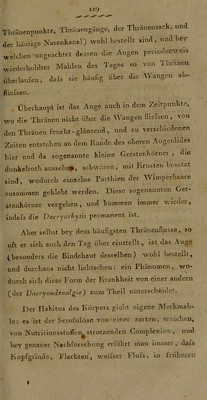 119
Thränenpunkte, Thränengänge, der Thränensack, und
der häutige Nasenkanal) wohl bestellt sind, und bey
welchen ungeachtet dessen die Augen periodenweis
wiederhohlter Mahlen des Tages so von Thränen
überlaufen, daſs sie häufig über die Wangen ab-
flieſsen.
Überhaupt ist das Auge auch in dem Zeitpunkte,
wo die Thränen nicht über die Wangen flieſsen, von
den Thränen feucht-glänzend, und zu verschiedenen
Zeiten entstehen an dem Rande des oberen Augenlides
hier und da sogenannte kleine Gerstenkörner, die
dunkelroth aussehen, schwären, mit Krusten besetzt
sind, wodurch einzelne Parthien der Wimperhaare
zusammen geklebt werden. Diese sogenannten Ger-
stenkörner vergehen, und kommen immer wieder,
indeſs die Dacryorhysis permanent ist.
Aber selbst bey dem häufigsten Thränenflusse, so
oft er sich auch den Tag über einstellt, ist das Auge
(besonders die Bindehaut desselben) wohl bestellt,
und durchaus nicht lichtscheu: ein Phänomen, wo-
durch sich diese Form der Krankheit von einer andern
(der Dacryoadenalgie) zum Theil unterscheidet.
Der Habitus des Körpers giebt eigene Merkmah-
le: es ist der Scrofulöse von einer zarten, weichen,
von Nutritionsstoffen strotzenden Complexion, und
bey genauer Nachforschung erfährt man immer, daſs
Kopfgrinde, Flechten, weiſser Fluſs, in früheren